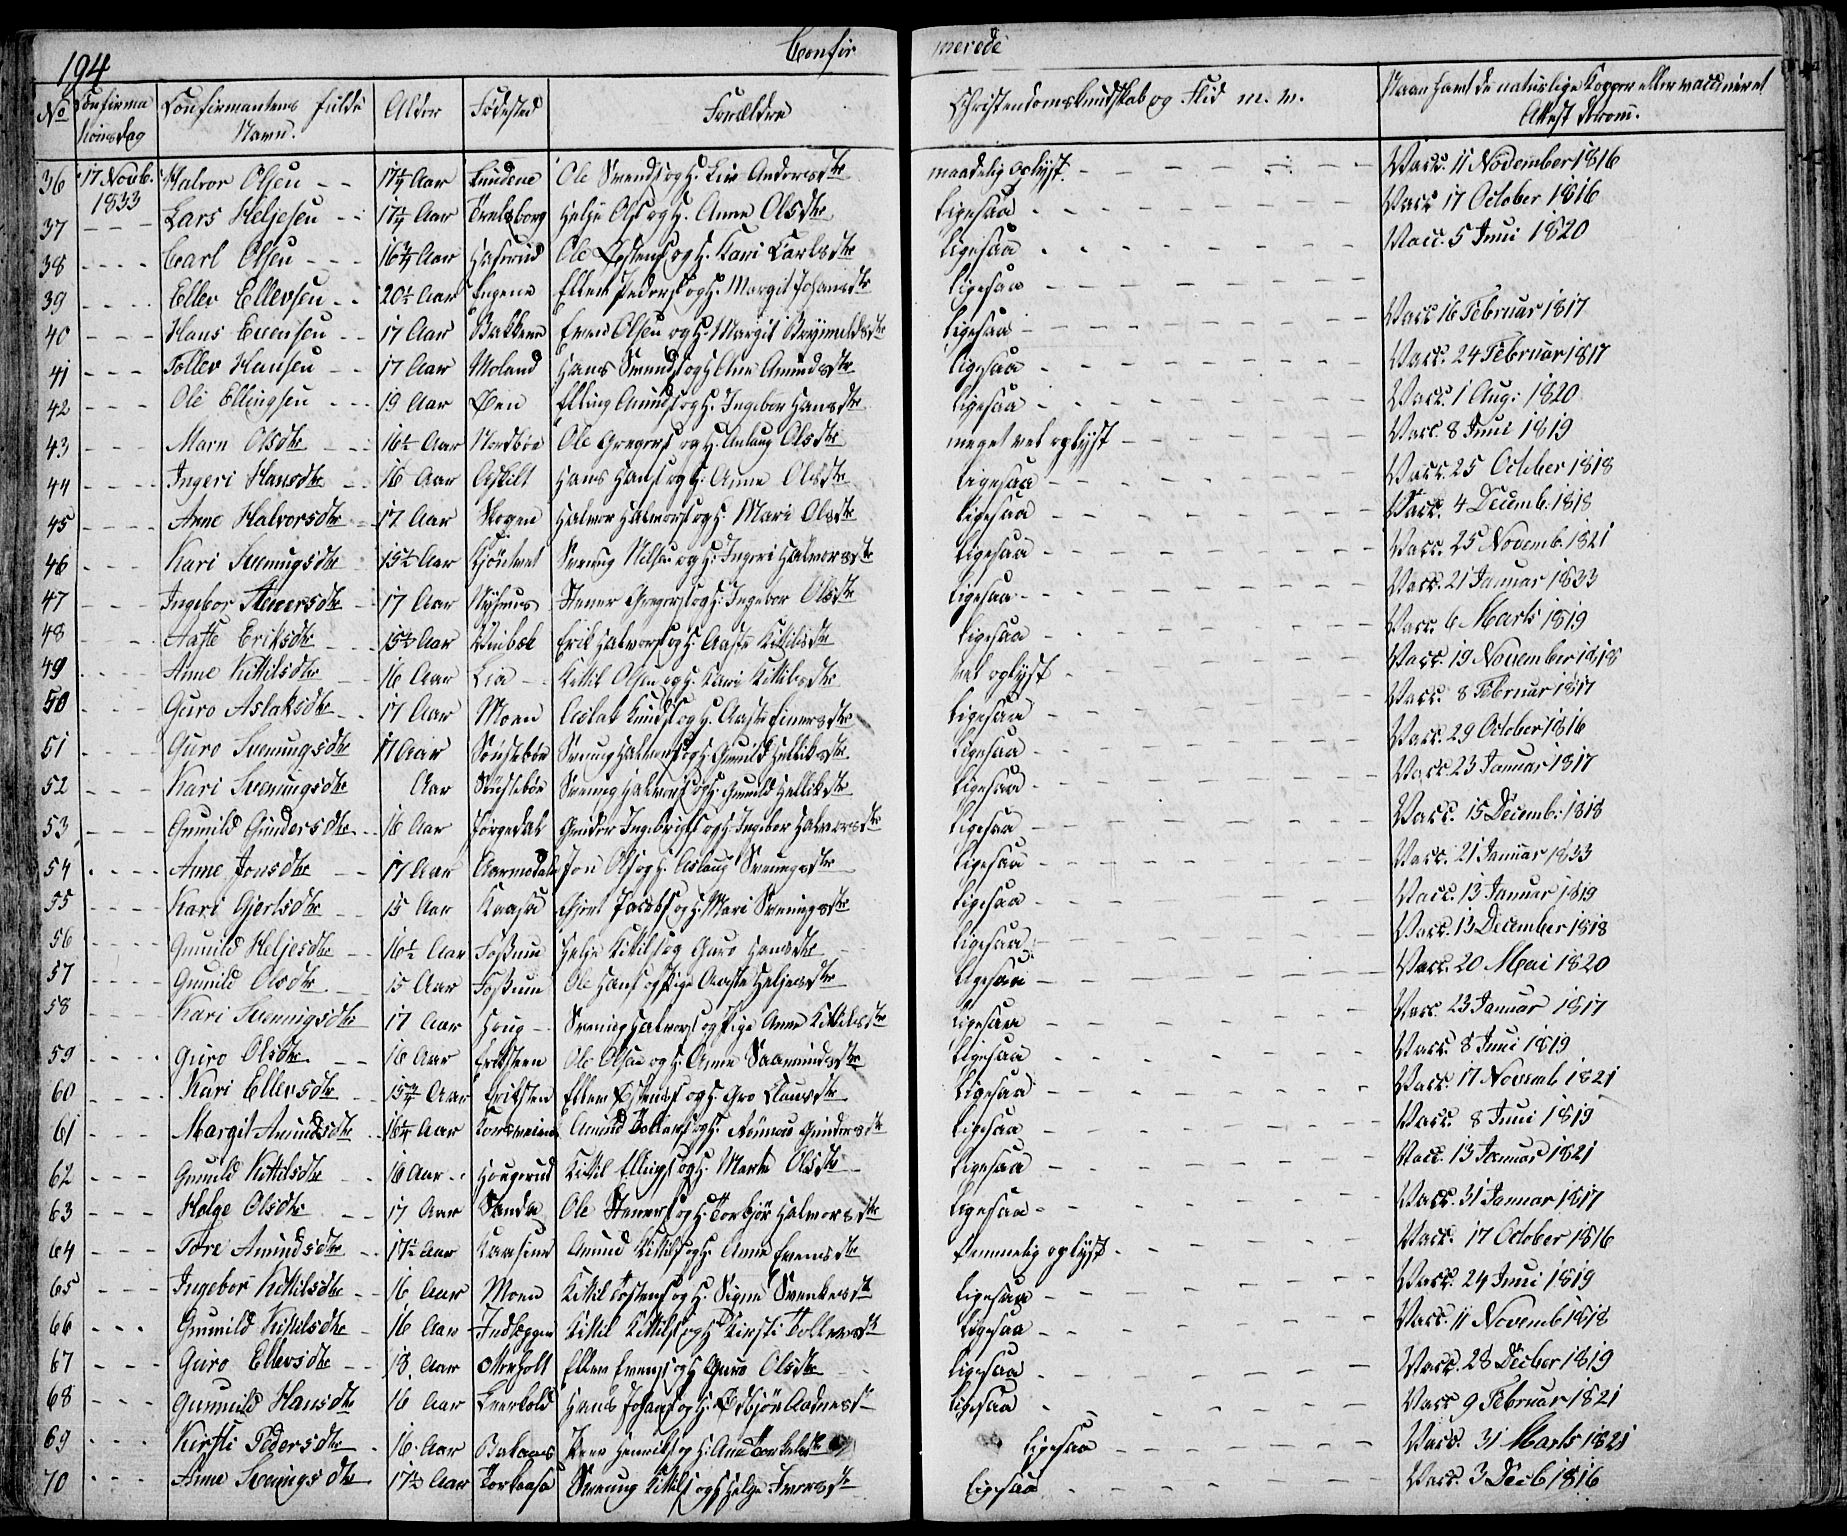 194
Confir merede
No Confirmationsdag Confirmantens fulde Navn. Alder Fødested Forældre Christendomskundskab og Flid m. m. Naar havt de naturlige Kopper eller vaccineret Attest derom.
36 17 Novb. 1833 Halvor Olsen 17¼ Aar Ole Svends og H. Liv Andersdtr maadelig oplyst Vacc. 11 November 1816
37 Lars Heljesen 17¼ Aar Helje Ols og H. Anne Olsdtr ligesaa Vacc 17 October 1816
38 Carl Olsen 16¾ Aar Ole Østens og H. Kari Carlsdtr ligesaa Vacc. 5 Juni 1820
39 Ellev Ellevsen 20½ Aar Engene Ellev Peders og H. Margit Johansdtr ligesaa
40 Hans Evensen 17 Aar Bakkene Even Olsen og H. Margit Brynildsdtr ligesaa Vacc 16 Februar 1817
41 Tollev Hansen 17 Aar Moland Hans og H. Ane Amundsdtr ligesaa Vacc. 24 Februar 1817
42 Ole Ellingsen 19 Aar Øen Elling Amunds og H. Ingebor Hansdtr ligesaa Vacc. 1 Aug: 1820
43 Marn Olsdtr 16½ Aar Nordbøe Ole Gregers og H. Anlaug Olsdtr meget vel oplyst Vacc. 8 Juni 1819
44 Ingeri Hansdtr 16 Aar Askilt Hans Hans og H. Anne Olsdtr ligesaa Vacc. 25 October 1818
45 Anne Halvorsdtr 17 Aar Skogen Halvor Halvors og H. Mari Olsdtr ligesaa Vacc. 4 Decemb. 1818
46 Kari Svenungsdtr 15½ Aar Svenung Nilsen og H. Ingeri Halvorsdtr ligesaa Vacc. 25 Novemb. 1821
47 Ingebor Stenersdtr 17 Aar Nyhuus Stener Gregers og H. Ingebor Olsdtr ligesaa Vacc. 21 Januar 1833
48 Aaste Eriksdtr 15½ Aar Erik Halvors og H. Aaste Kittilsdtr ligesaa Vacc. 6 Marts 1819
49 Anne Kittilsdtr 16 Aar Lia Kittil Olsen og H. Kari Kittilsdtr vel oplyst Vacc. 19 November 1818
50 Guro Aslaksdtr 17 Aar Moen Aslak Knuds og H. Aaste Einersdtr ligesaa Vacc. 8 Februar 1817
51 Guro Svenungsdtr 17 Aar Svenung Halvors og H. Gunild Helliksdtr ligesaa Vacc. 29 October 1816
52 Kari Svenungsdtr Aar Svenung Halvors og H. Gunild Helliksdtr ligesaa Vacc. 23 Januar 1817
53 Gunild Gundersdtr 16 Aar Jørgedal Gunder Ingebrigts og H. Ingebor Halvorsdtr ligesaa Vacc. 15 Decemb. 1818
54 Anne Jonsdtr 17 Aar Jon Ols og H. Aslaug Svenungsdtr ligesaa Vacc. 21 Januar 1833
55 Kari Gjertsdtr 15 Aar Kaasa Gjert Jacobs og H. Mari Svenungsdtr ligesaa Vacc. 13 Januar 1819
56 Gunild Heljesdtr 16½ Aar Fossum Helje Kittils og Guro Hansdtr ligesaa Vacc. 13 December 1818
57 Gunild Olsdtr 15 Aar Fossum Ole Hans og Pige Aaste Heljesdtr ligesaa Vacc. 20 Mai 1820
58 Kari Svenungsdtr 17 Aar Houg Svenung Halvors og Pige Anne Kittilsdtr ligesaa Vacc. 23 Januar 1817
59 Guro Olsdtr 16 Aar Eriksteen Ole Olsen og H. Anne Saamundsdtr ligesaa Vacc. 8 Juni 1819
60 Kari Ellevsdtr 15¾ Aar Eriksteen Ellev Østens og H. Gro Clausdtr ligesaa Vacc. 17 Novemb 1821
61 Margit Amundsdtr 16¼ Aar Amund Tollefs og H. Gundersdtr ligesaa Vacc. 8 Juni 1819
62 Gunild Kittilsdtr 16 Aar Hougerud Kittil Ellings og H. Marte Olsdtr ligesaa Vacc. 13 Januar 1821
63 Helge Olsdtr 17 Aar Sanda Ole Steners og H. Torbjør Halvorsdtr ligesaa Vacc. 31 Januar 1817
64 Tore Amundsdtr 17½ Aar Amund Kittils og H. Anne Evensdtr temmelig oplyst Vacc. 17 October 1816
65 Ingebor Kittilsdtr 16 Aar Moen Kittil Tostens og H. Signe Svenkesdtr ligesaa Vacc. 24 Juni 1819
66 Gunild Kittilsdtr 16 Aar Kittil Kittils og H. Kirsti Tollevsdtr ligesaa Vacc. 11 Novemb 1818
67 Guro Ellevsdtr 18 Aar Moeholt Ellev Evens og H. Guro Olsdtr ligesaa Vacc. 28 Decber 1819
68 Gunnild Hansdtr 16 Aar Hans Johans og H. Aadnesdtr ligesaa Vacc 9 Februar 1821
69 Kirsti Pedersdtr 16 Aar Peder Henriks og H. Ane Torkelsdtr ligesaa Vacc. 31 Marts 1821
70 Anne Svenungsdtr 17¼ Aar Torkaasa Svenung Kittils og H. Helge Iversdtr ligesaa Vacc. 3 Decb 1816